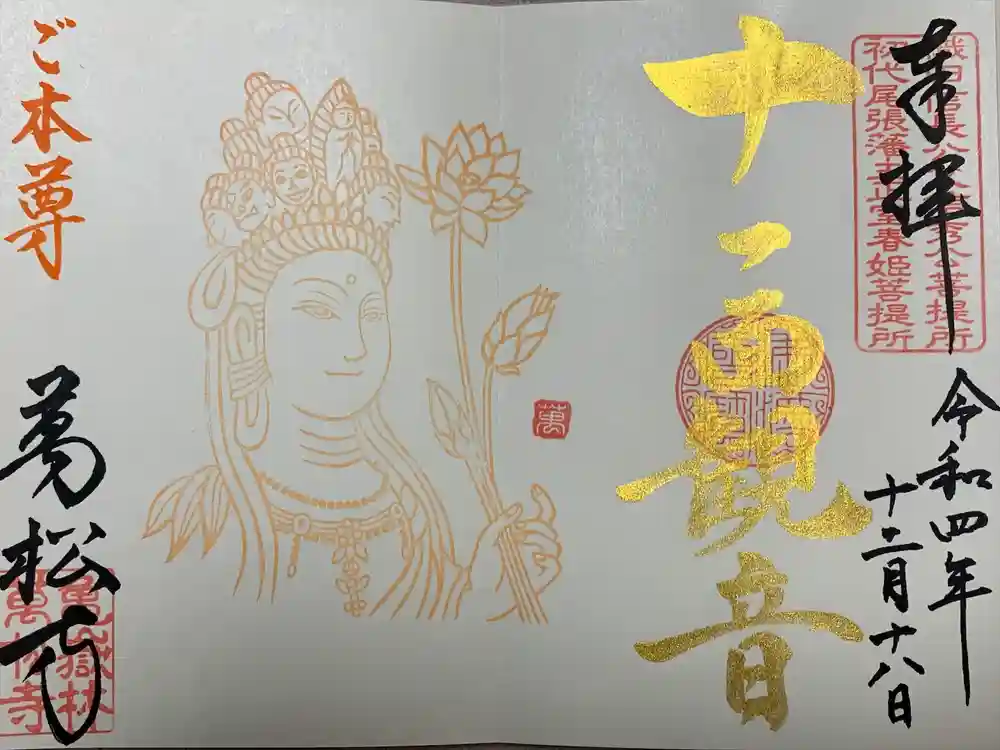 奉拝
織田信長公父信秀公菩提所
初代尾張藩主正室春姫菩提所
令和四年
十二月十八日
十一面観音
萬
ご本尊
萬松寺
亀嶽林
萬松寺